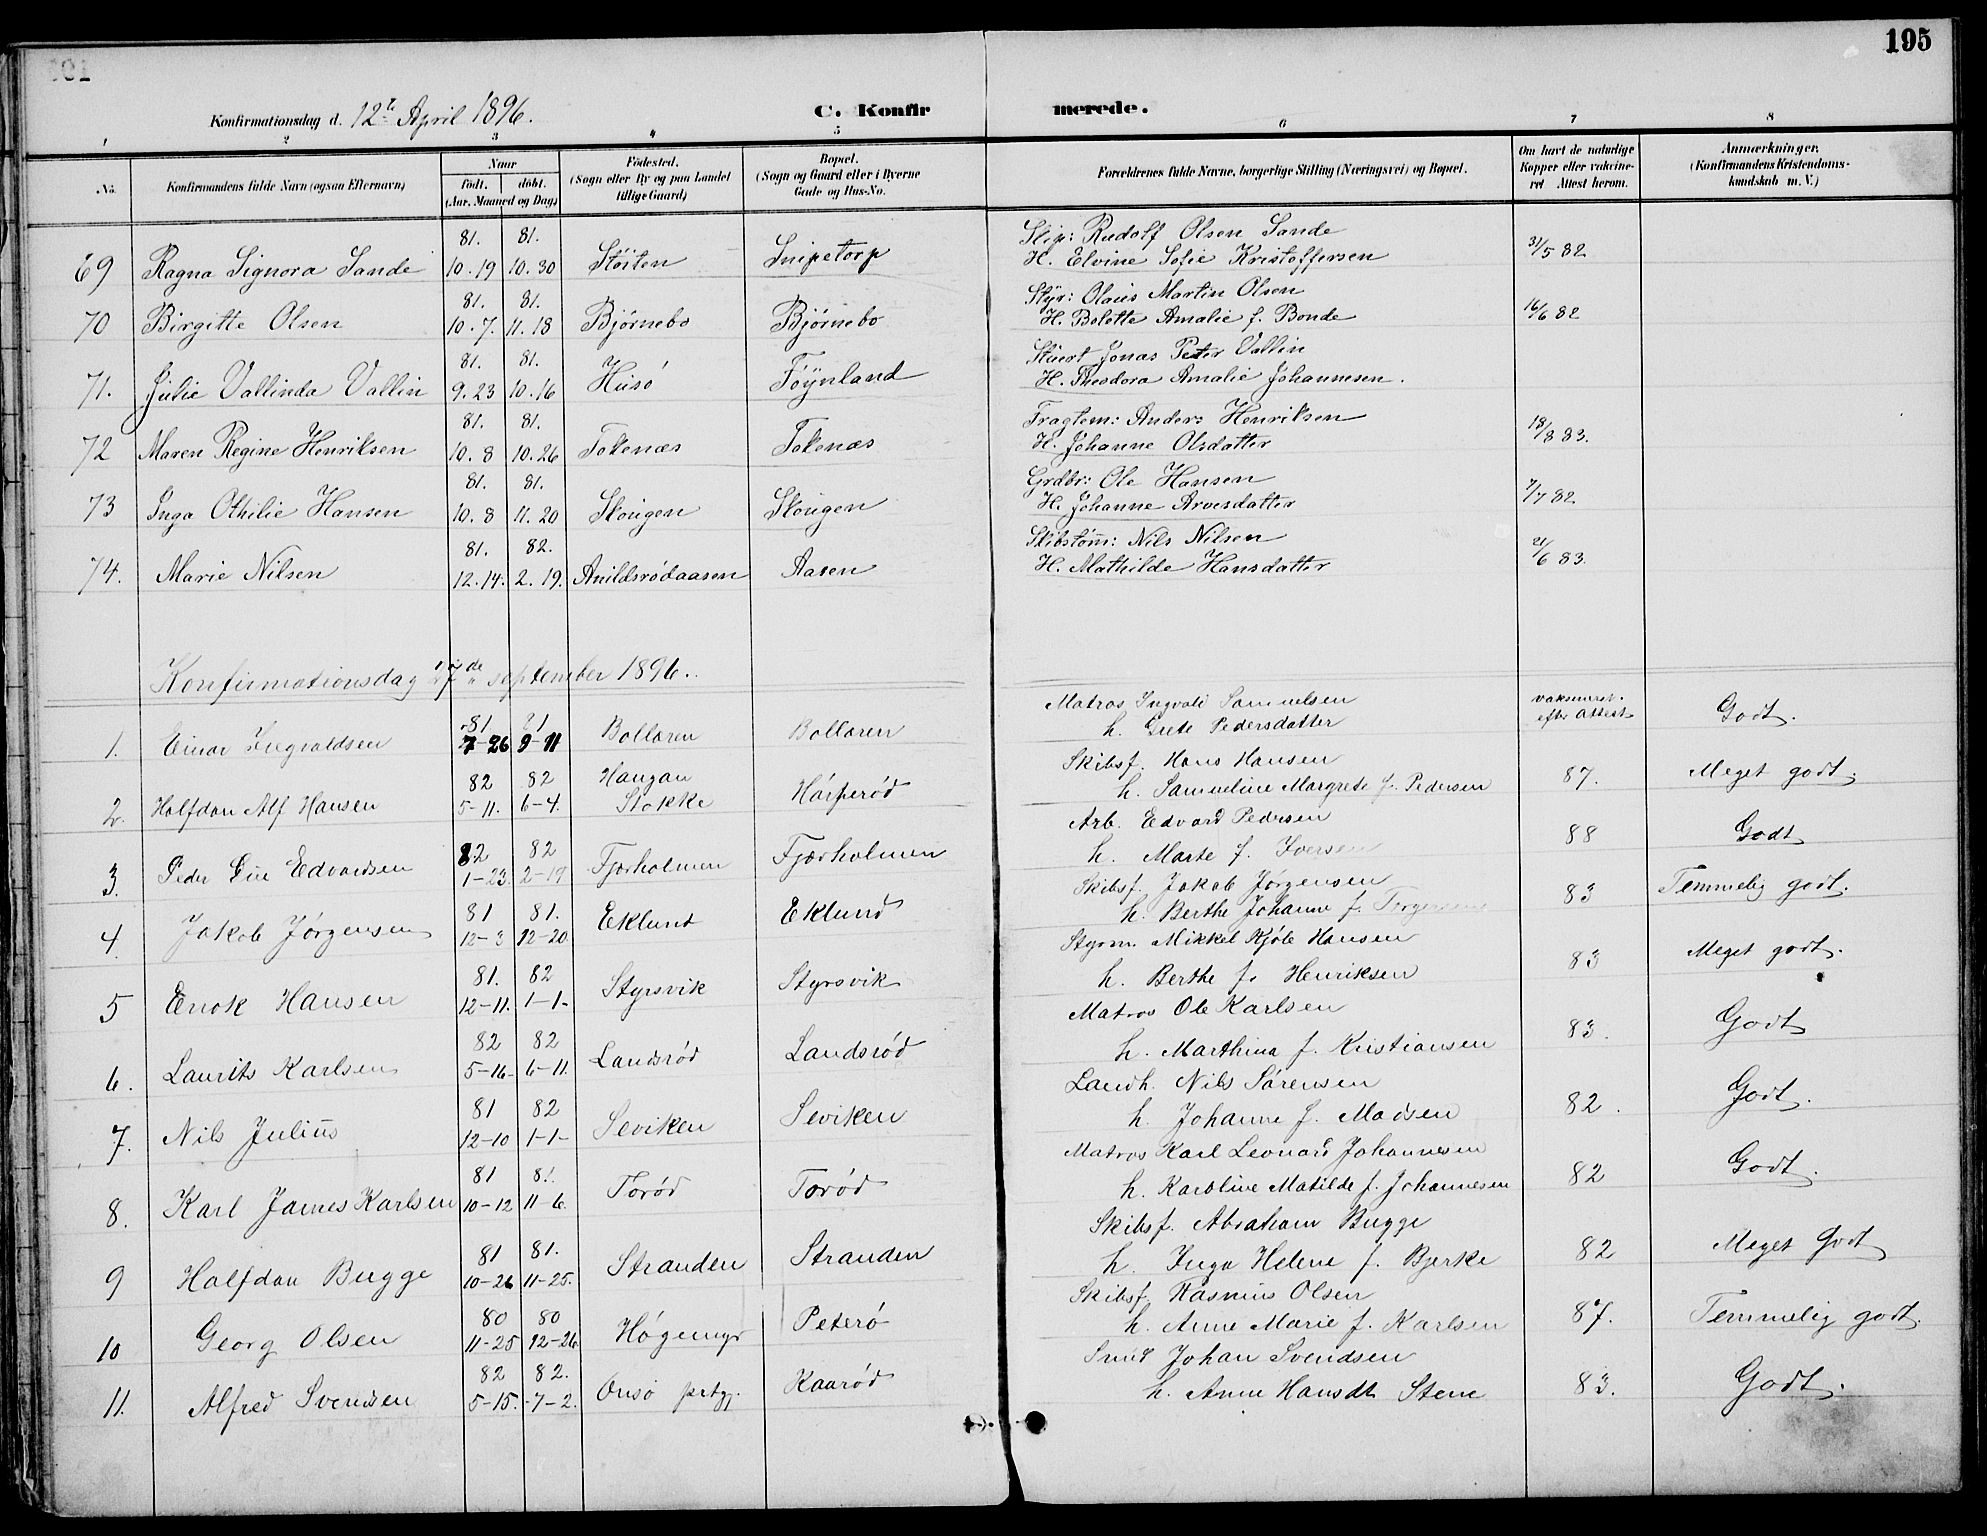 195
Konfirmationsdag d. 12te April 1896.
C. Konfirmerede.
1 2 3 4 5 6 7 8
No.
Konfirmandens fulde Navn (ogsaa Efternavn)
Naar
født. døbt.
(Aar, Maaned og Dag)
Fødested.
(Sogn eller By og paa Landet
tillige Gaard)
Bopæl.
(Sogn og Gaard eller i Byerne
Gade og Hus-No.
Forældrenes fulde Navne, borgerlige Stilling (Næringsvei) og Bopæl.
Om havt de naturlige
Kopper eller vakcine-
ret Attest herom.
Anmærkninger.
(Konfirmandens Kristendoms-
kundskab m. V.)
81. 81. Skip: Rudolf Olsen Sande
69 Ragna Signora Sande 10.19 10.30 Støiten Snipetorp H. Elvine Sofie Kristoffersen 31/5 82
81. 81. Styr: Olaus Martin Olsen
70 Birgitte Olsen 10.7. 11.18 Bjørnebo Bjørnebo H. Bolette Amalie f. Bonde 16/6 82
81. 81. Stuert Jonas Peter Vallin
71. Julie Vallinda Vallin 9.23 10.16 Husø Føynland H. Theodora Amalie Johannesen.
81. 81. Fragtem: Anders Henriksen
72 Maren Regine Henriksen 10.8 10.26 Tokenæs Tokenæs H. Johanne Olsdatter 18/8 83.
81. 81. Grdbr: Ole Hansen
73 Inga Othilie Hansen 10.8 11.20 Skougen Skougen H. Johanne Arvesdatter 7/7 82
81. 82. Skibstøm: Nils Nilsen
74. Marie Nilsen 12.14. 2.19. Anildsrødaasen Aasen H. Mathilde Hansdatter 21/6 83.
Konfirmationsdag 27de september 1896.
81 81 Matros Ingvald Samuelsen vaksineret.
1. Einar Ingvaldsen 7-26 9-11 Bollæren Bollæren h. Grete Pedersdatter efter attest Godt.
82 82 Haugan Skibsf. Hans Hansen
2. Halfdan Alf Hansen 5-11. 6-4. Stokke Hárperød h. Samueline Margrete f. Pedersen 87. Meget godt.
82 82 Arb. Edvard Pedersen
3. Peder Edvardsen 1-23. 2-19 Fjærholmen Fjærholmen h. Marte f. Iversen 88 Godt
81 81. Skibsf. Jakob Jørgensen
4. Jakob Jørgensen 12-3 12-20 Eklund Eklund h. Berthe Johanne f. 83 Temmelig godt.
81. 82 Styrm. Mikkel Kjøle Hansen
5 Enok Hansen 12-11. 1-1- Styrsvik Styrsvik h. Berthe f. Henriksen 83 Meget godt.
82 82 Matros Ole Karlsen
6. Laurits Karlsen 5-16- 6-11. Landsrød Landsrød h. Marthina f. Kristiansen 83. Godt
81 82 Landh. Nils Sørensen
7. Nils Julius 12-10 1-1- Seviken Seviken h. Johanne f. Madsen 82. Godt.
81 81. Matros Karl Leonard Johannesen
8. Karl James Karlsen 10-12 11-6. Torød Torød h. Karoline Matilde f. Johannesen 82 Godt.
81 81. Skibsf. Abraham Bugge
9 Halfdan Bugge 10-26 11-25. Stranden Stranden h. Inga Helene f. Bjerke 82 Meget Godt
80 80 Skibsf. Rasmus Olsen
10 Georg Olsen 11-25 12-26. Høgemyr Peterø h. Anne Marie f. Karlsen 87. Temmelig godt.
82 82. Smed Johan Svendsen
11. Alfred Svendsen 5-15. 7-2. Onsø prstgj. Kaarød h. Anne Hansdt Stene 83. Godt.